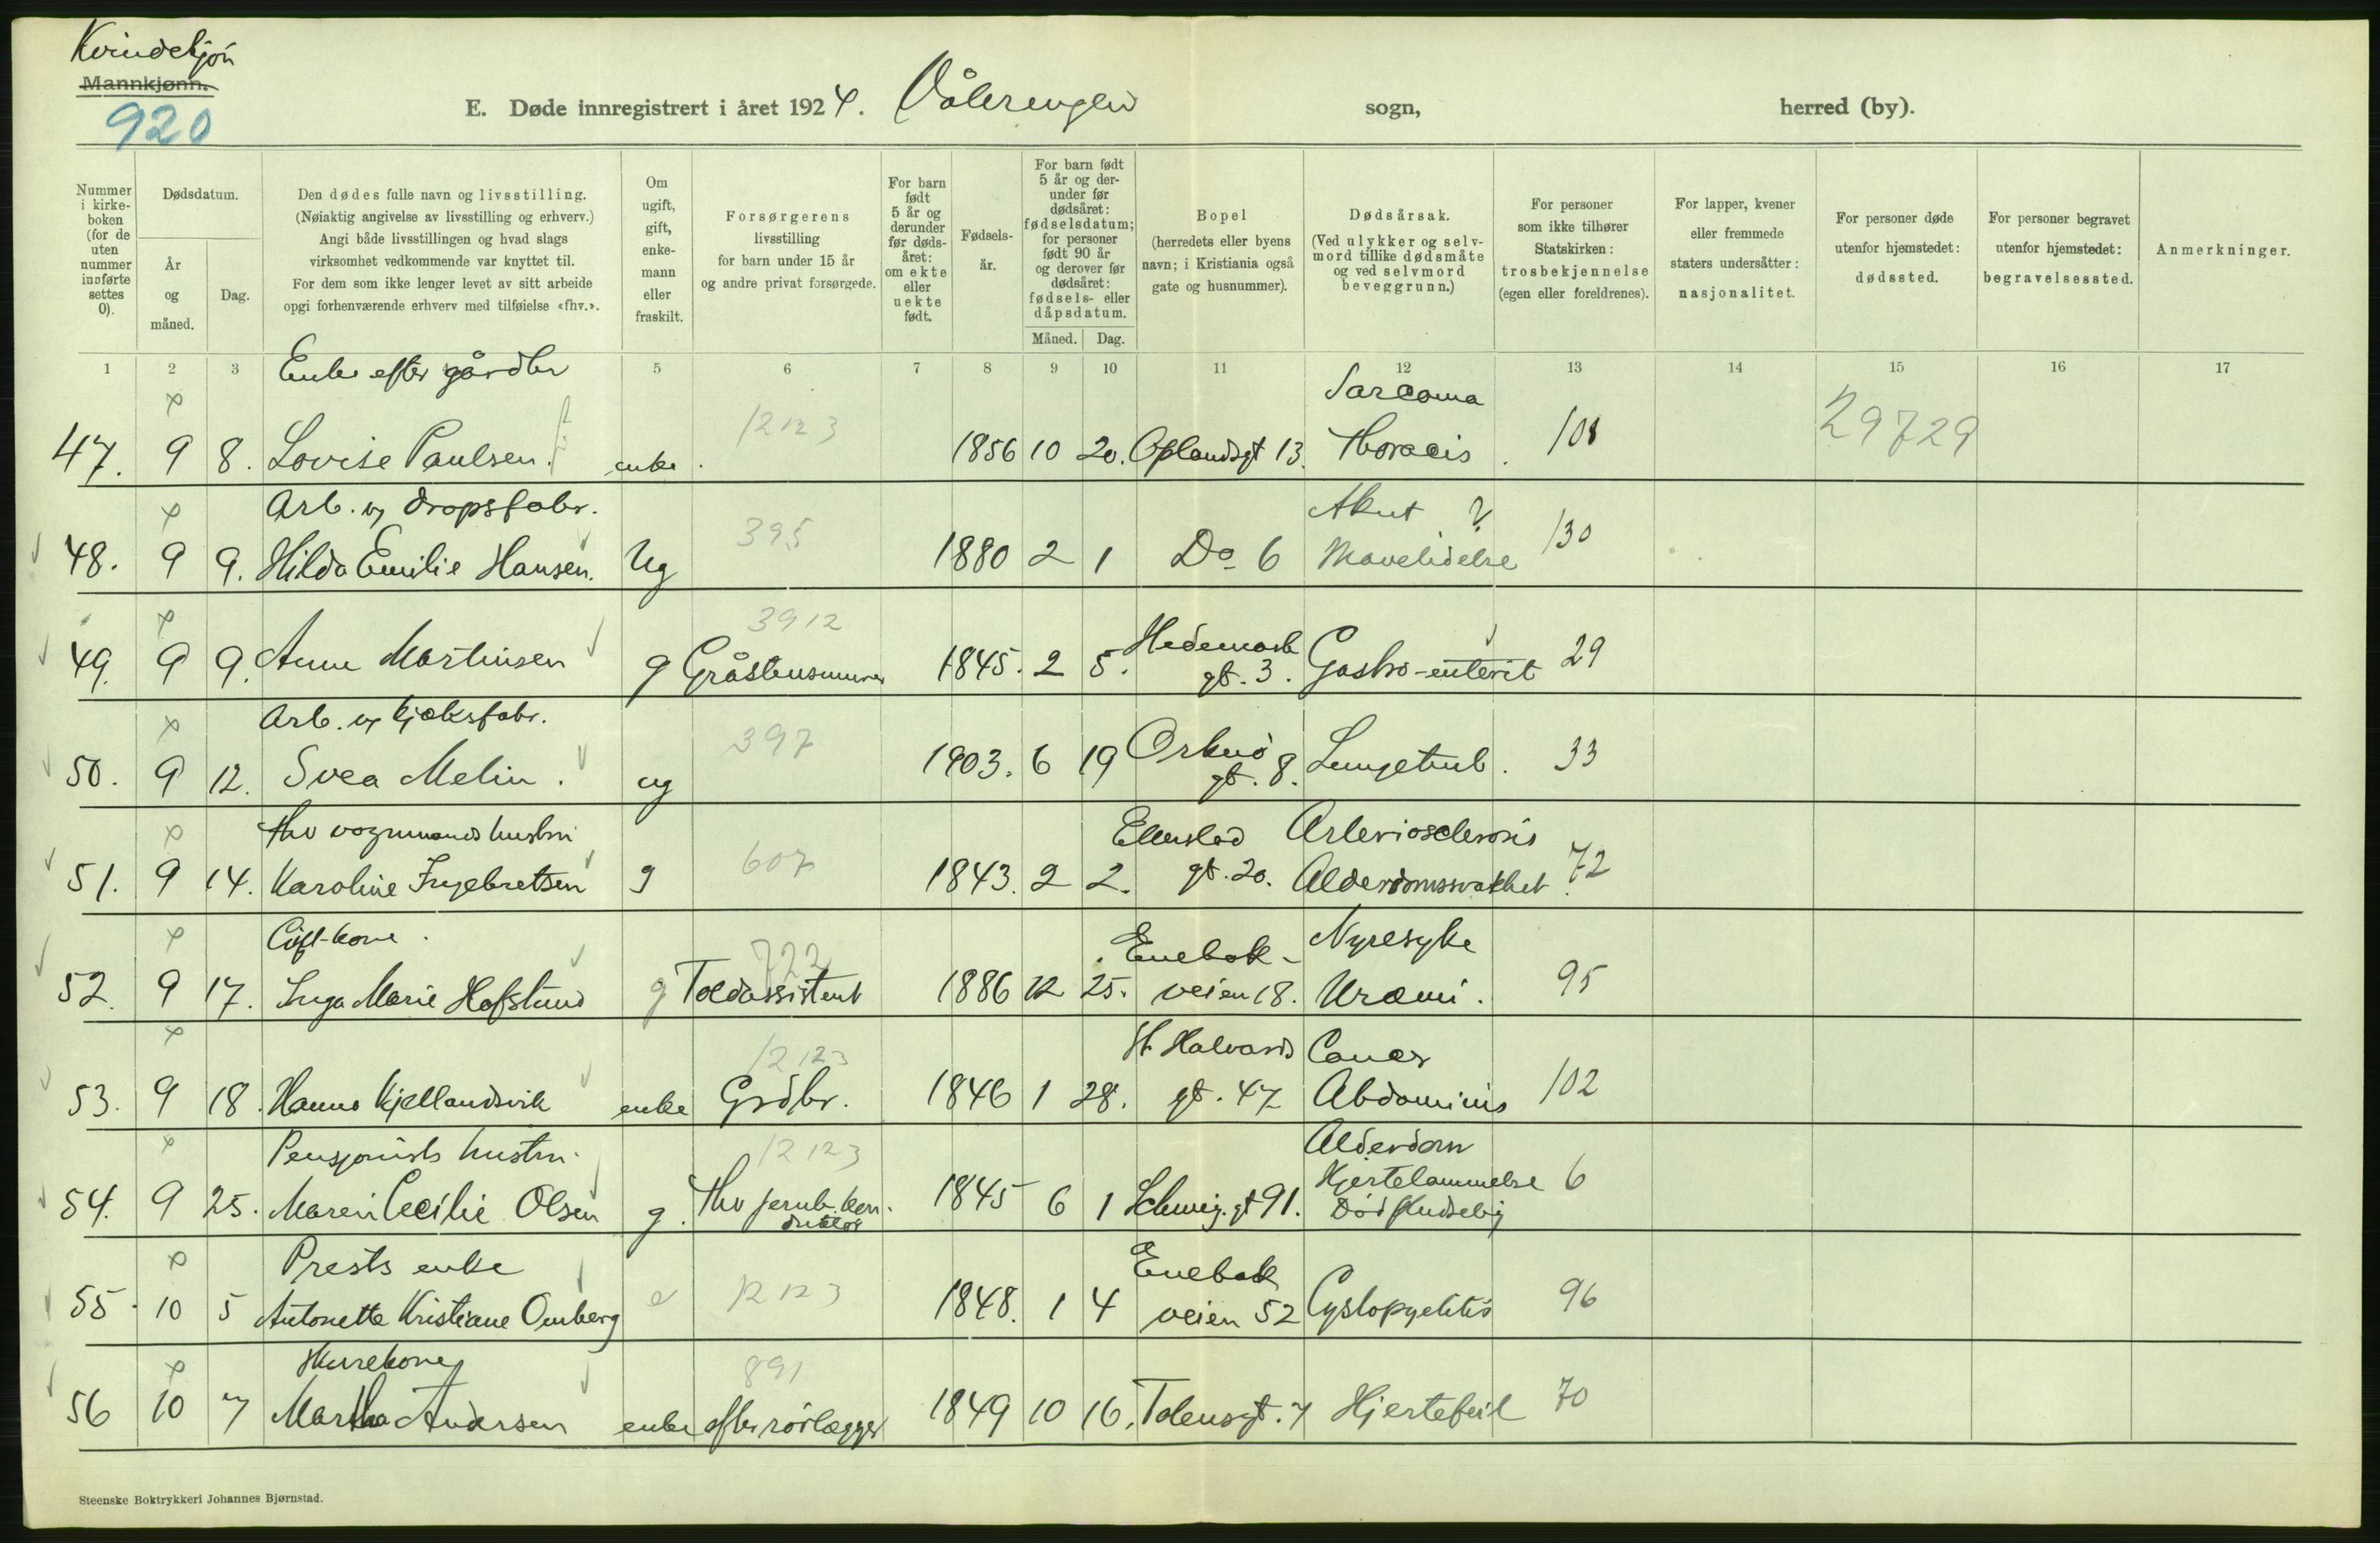 Kvindekjøn
Mannkjønn.
920
E. Døde innregistrert i året 1924. Vålerengen sogn, herred (by).
Nummer i kirke- boken (for de uten nummer innførte settes 0).
Dødsdatum.
År og måned.
Dag.
Den dødes fulle navn og livsstilling.
(Nøiaktig angivelse av livsstilling og erhverv.)
Angi både livsstillingen og hvad slags
virksomhet vedkommende var knyttet til.
For dem som ikke lenger levet av sitt arbeide
opgi forhenværende erhverv med tilføielse «fhv.».
Om ugift, gift, enke- mann eller fraskilt.
Forsørgerens
livsstilling
for barn under 15 år
og andre privat forsørgede.
For barn født 5 år og derunder før døds- året: om ekte eller uekte født.
Fødsels- år.
For barn født 5 år og der- under før dødsåret: fødselsdatum; for personer født 90 år og derover før dødsåret: fødsels- eller dåpsdatum.
Måned. Dag.
Bopel
(herredets eller byens
navn; i Kristiania også
gate og husnummer).
Dødsårsak.
(Ved ulykker og selv-
mord tillike dødsmåte
og ved selvmord
beveggrunn.)
For personer
som ikke tilhører
Statskirken:
trosbekjennelse
(egen eller foreldrenes).
For lapper, kvener
eller fremmede
staters undersåtter:
nasjonalitet.
For personer døde
utenfor hjemstedet:
dødssted.
For personer begravet
utenfor hjemstedet:
begravelsessted.
Anmerkninger.
1 2 3 5 6 7 8 9 10 11 12 13 14 15 16 17
Enke efter gårdbr Sarcoma
47. 9 8. Lovise Paulsen. enke. 12123 1856 10 20. Oplandsgt 13. Thoracis. 108 29729
Arb. v, dropsfabr. Akut ?
48. 9 9. Hilda Emilie Hansen. Ug 395 1880 2 1 Do 6 Mavelidelse 130
3912 Hedemark
49. 9 9. Anna Martinsen g Gråstensmurer 1845. 2 5. gt. 3. Gastro-enterit 29
Arb. v, kjeksfabr.
50. 9 12. Svea Melin. ug 397 1903. 6 19 Orknö gt. 8. Lungetub. 33
fhv vognmands hustru Ellerslad Arteriosclerosis
51. 9 14. Karoline Ingebretsen g 607 1843. 2 2. gt. 20. Alderdomssvakhet. 72
Gift-kone. 722 Enebak- Nyresyke
52. 9 17. Inga Marie Hofslund g Toldassistent 1886 12 25. veien 18. Uræmi. 95
12123 St Halvards Cancer
53. 9 18. Hanna Kjellandsvik enke Grdbr. 1846 1 28. gt. 47 Abdominis 102
Pensjonists hustru. 12123 Alderdom
54. 9 25. Maren Cecilie Olsen g. fhv jernb. kon- 1845 6 1 Schweig. gt 91. Hjertelammelse 6
duktør Død pludselig
Prests enke Enebak
55. 10 5 Antonette Kristiane Omberg e 12123 1848. 1 4 veien 52 Cystopyelitis 96
Hurekone 891
56 10 7 Martha Andersen enke efter rørlægger 1849 10 16. Tolensgt. 7 Hjertefeil 70
Steenske Boktrykkeri Johannes Bjørnstad.